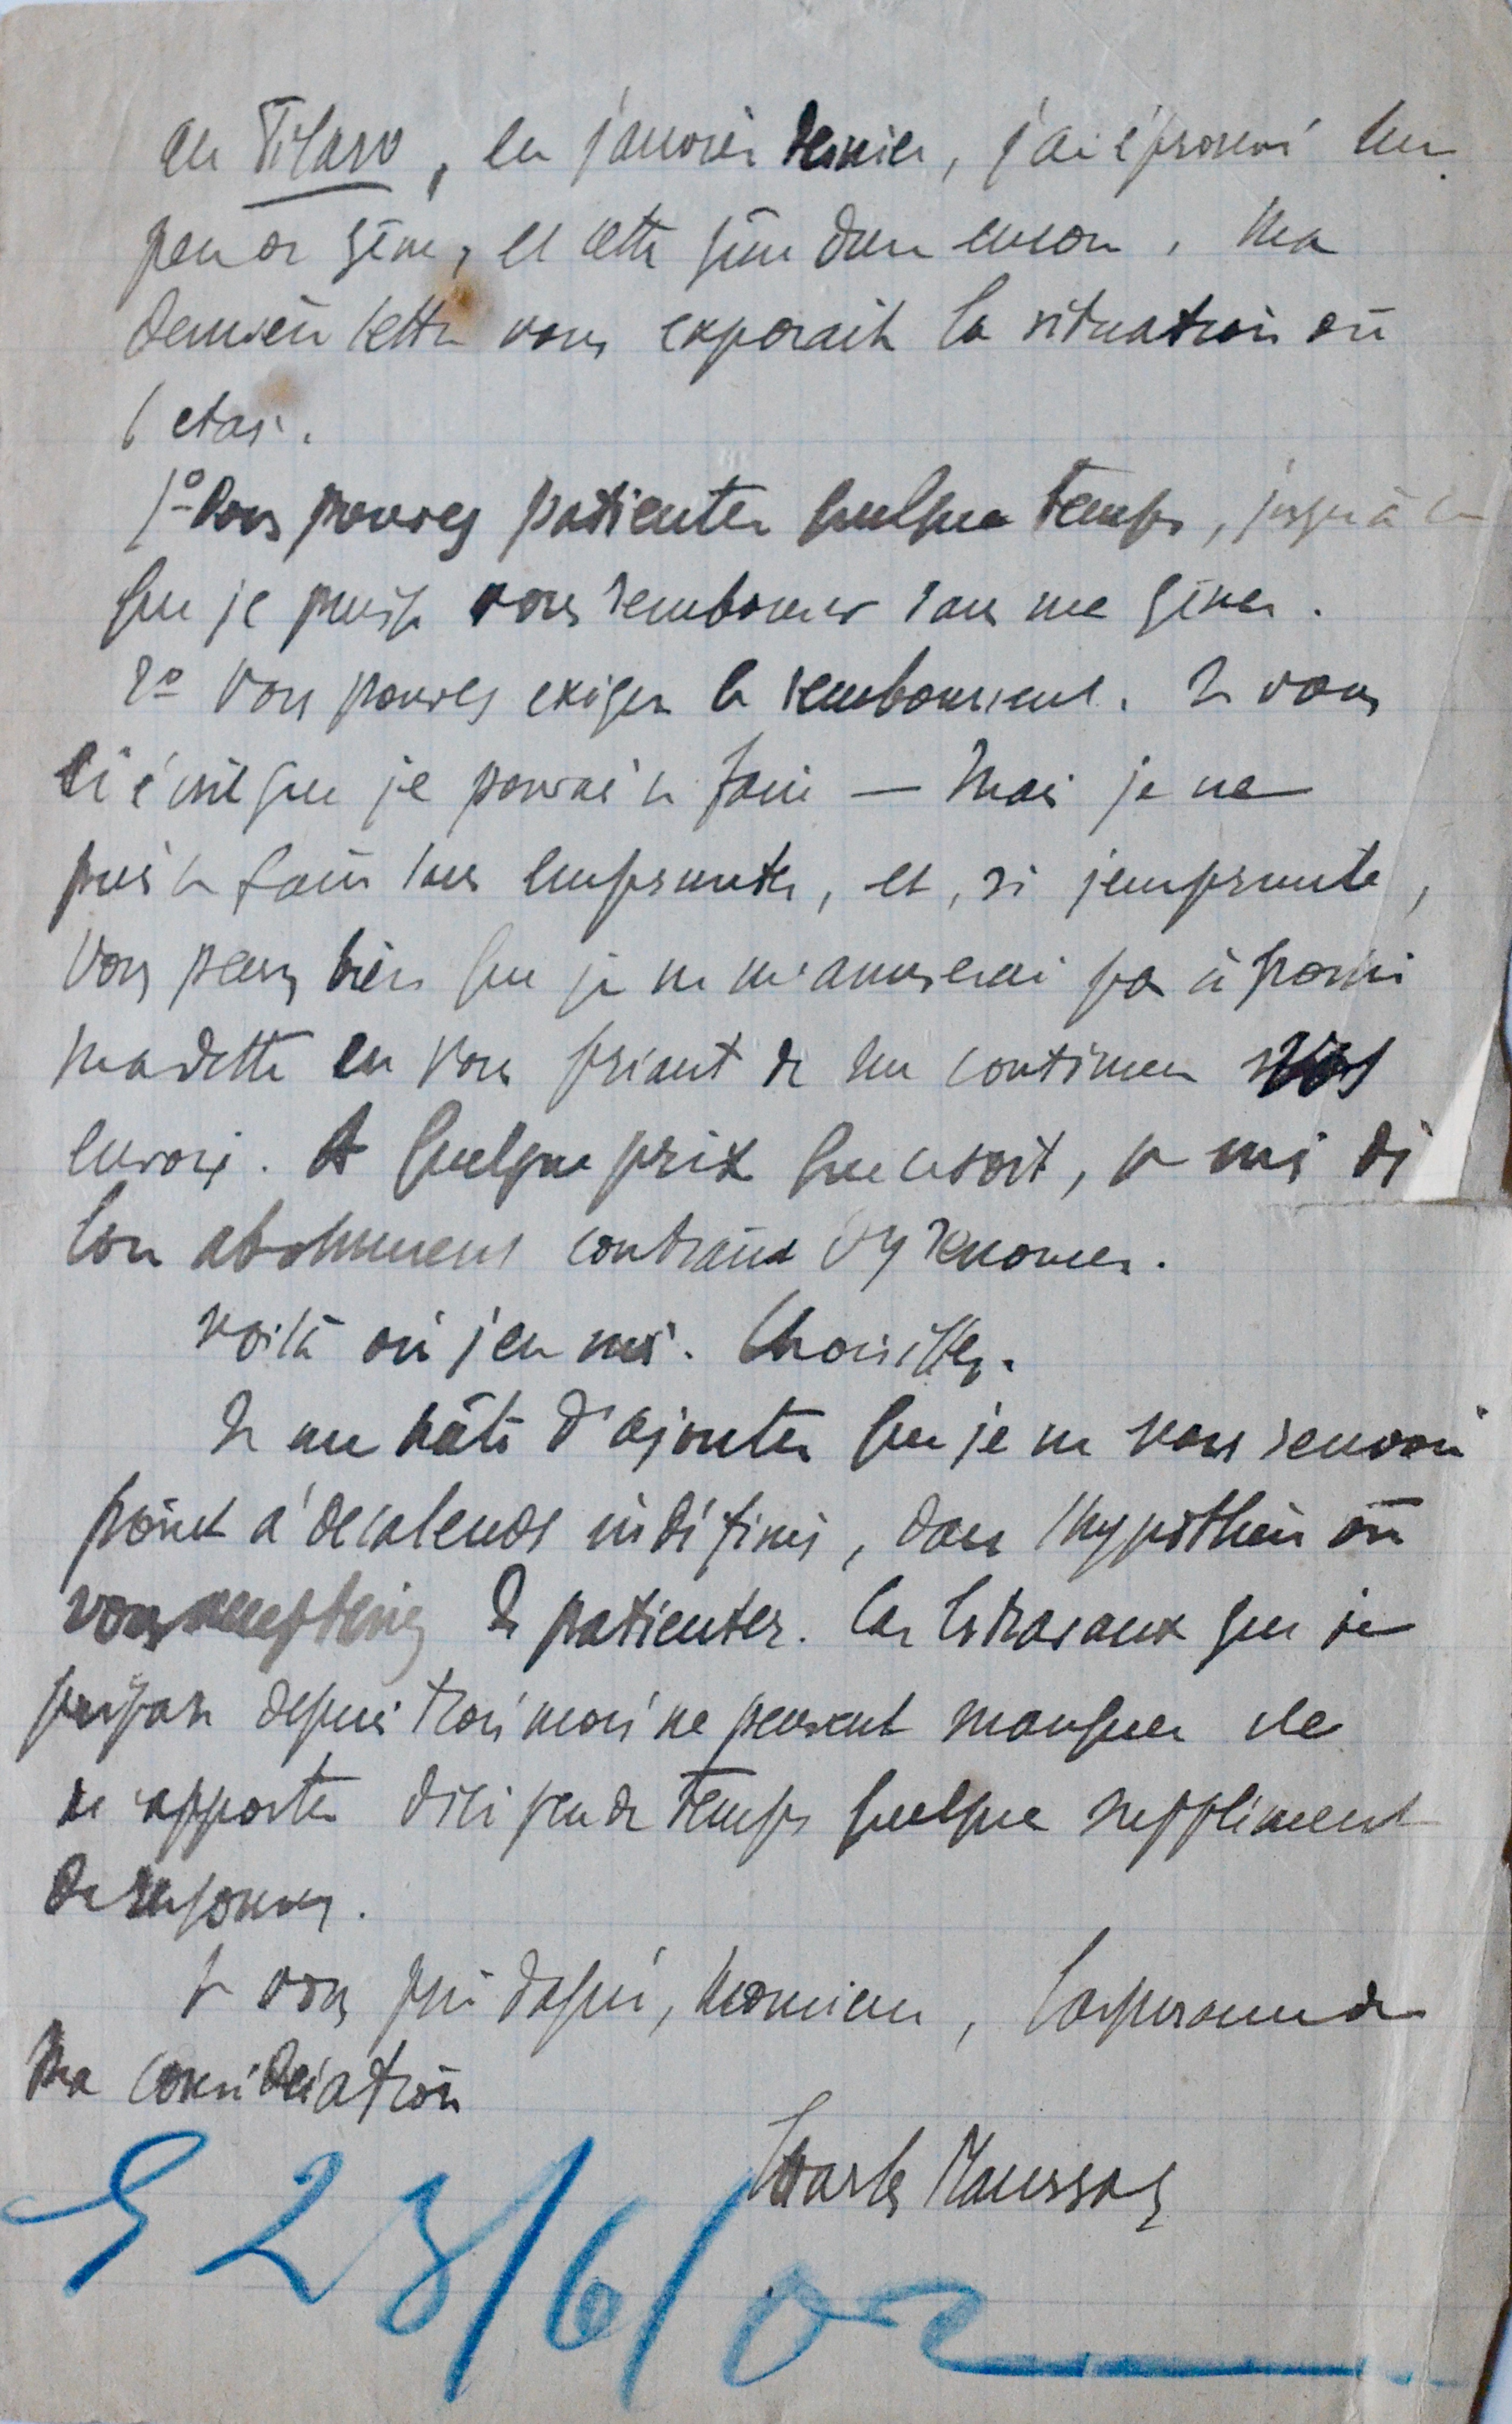 au Figaro, en janvier dernier, j'ai éprouvé un
peu de gêne, et cette gêne dure encore. Ma
dernière lettre vous exposait la situation où
j'étais.
1° Vous pouvez patienter quelque temps, jusqu'à ce
que je puisse vous rembourser sans me gêner.
2° Vous pouvez exiger le remboursement. Je vous
ai écrit que je pouvais le faire — Mais je ne
puis le faire sans emprunter, et, si j'emprunte,
Vous pensez bien que je ne m'amuserai pas à
ma dette en vous priant de me continuer vos
envois. A quelque prix que ce soit, je suis
bon abonnement contraint d'y renoncer.
Voilà où j'en suis. Choisissez.
Je me hâte d'ajouter que je ne vous renvoie
point à des calendes indéfinies, dans l'hypothèse où
vous accepteriez de patienter. Car les travaux que je
prépare depuis trois mois ne peuvent manquer de
m'apporter d'ici peu de temps quelque supplément
de ressources.
Je vous prie d'agréer, Monsieur, l'assurance de
Ma considération
Charles Maurras
23/6/02